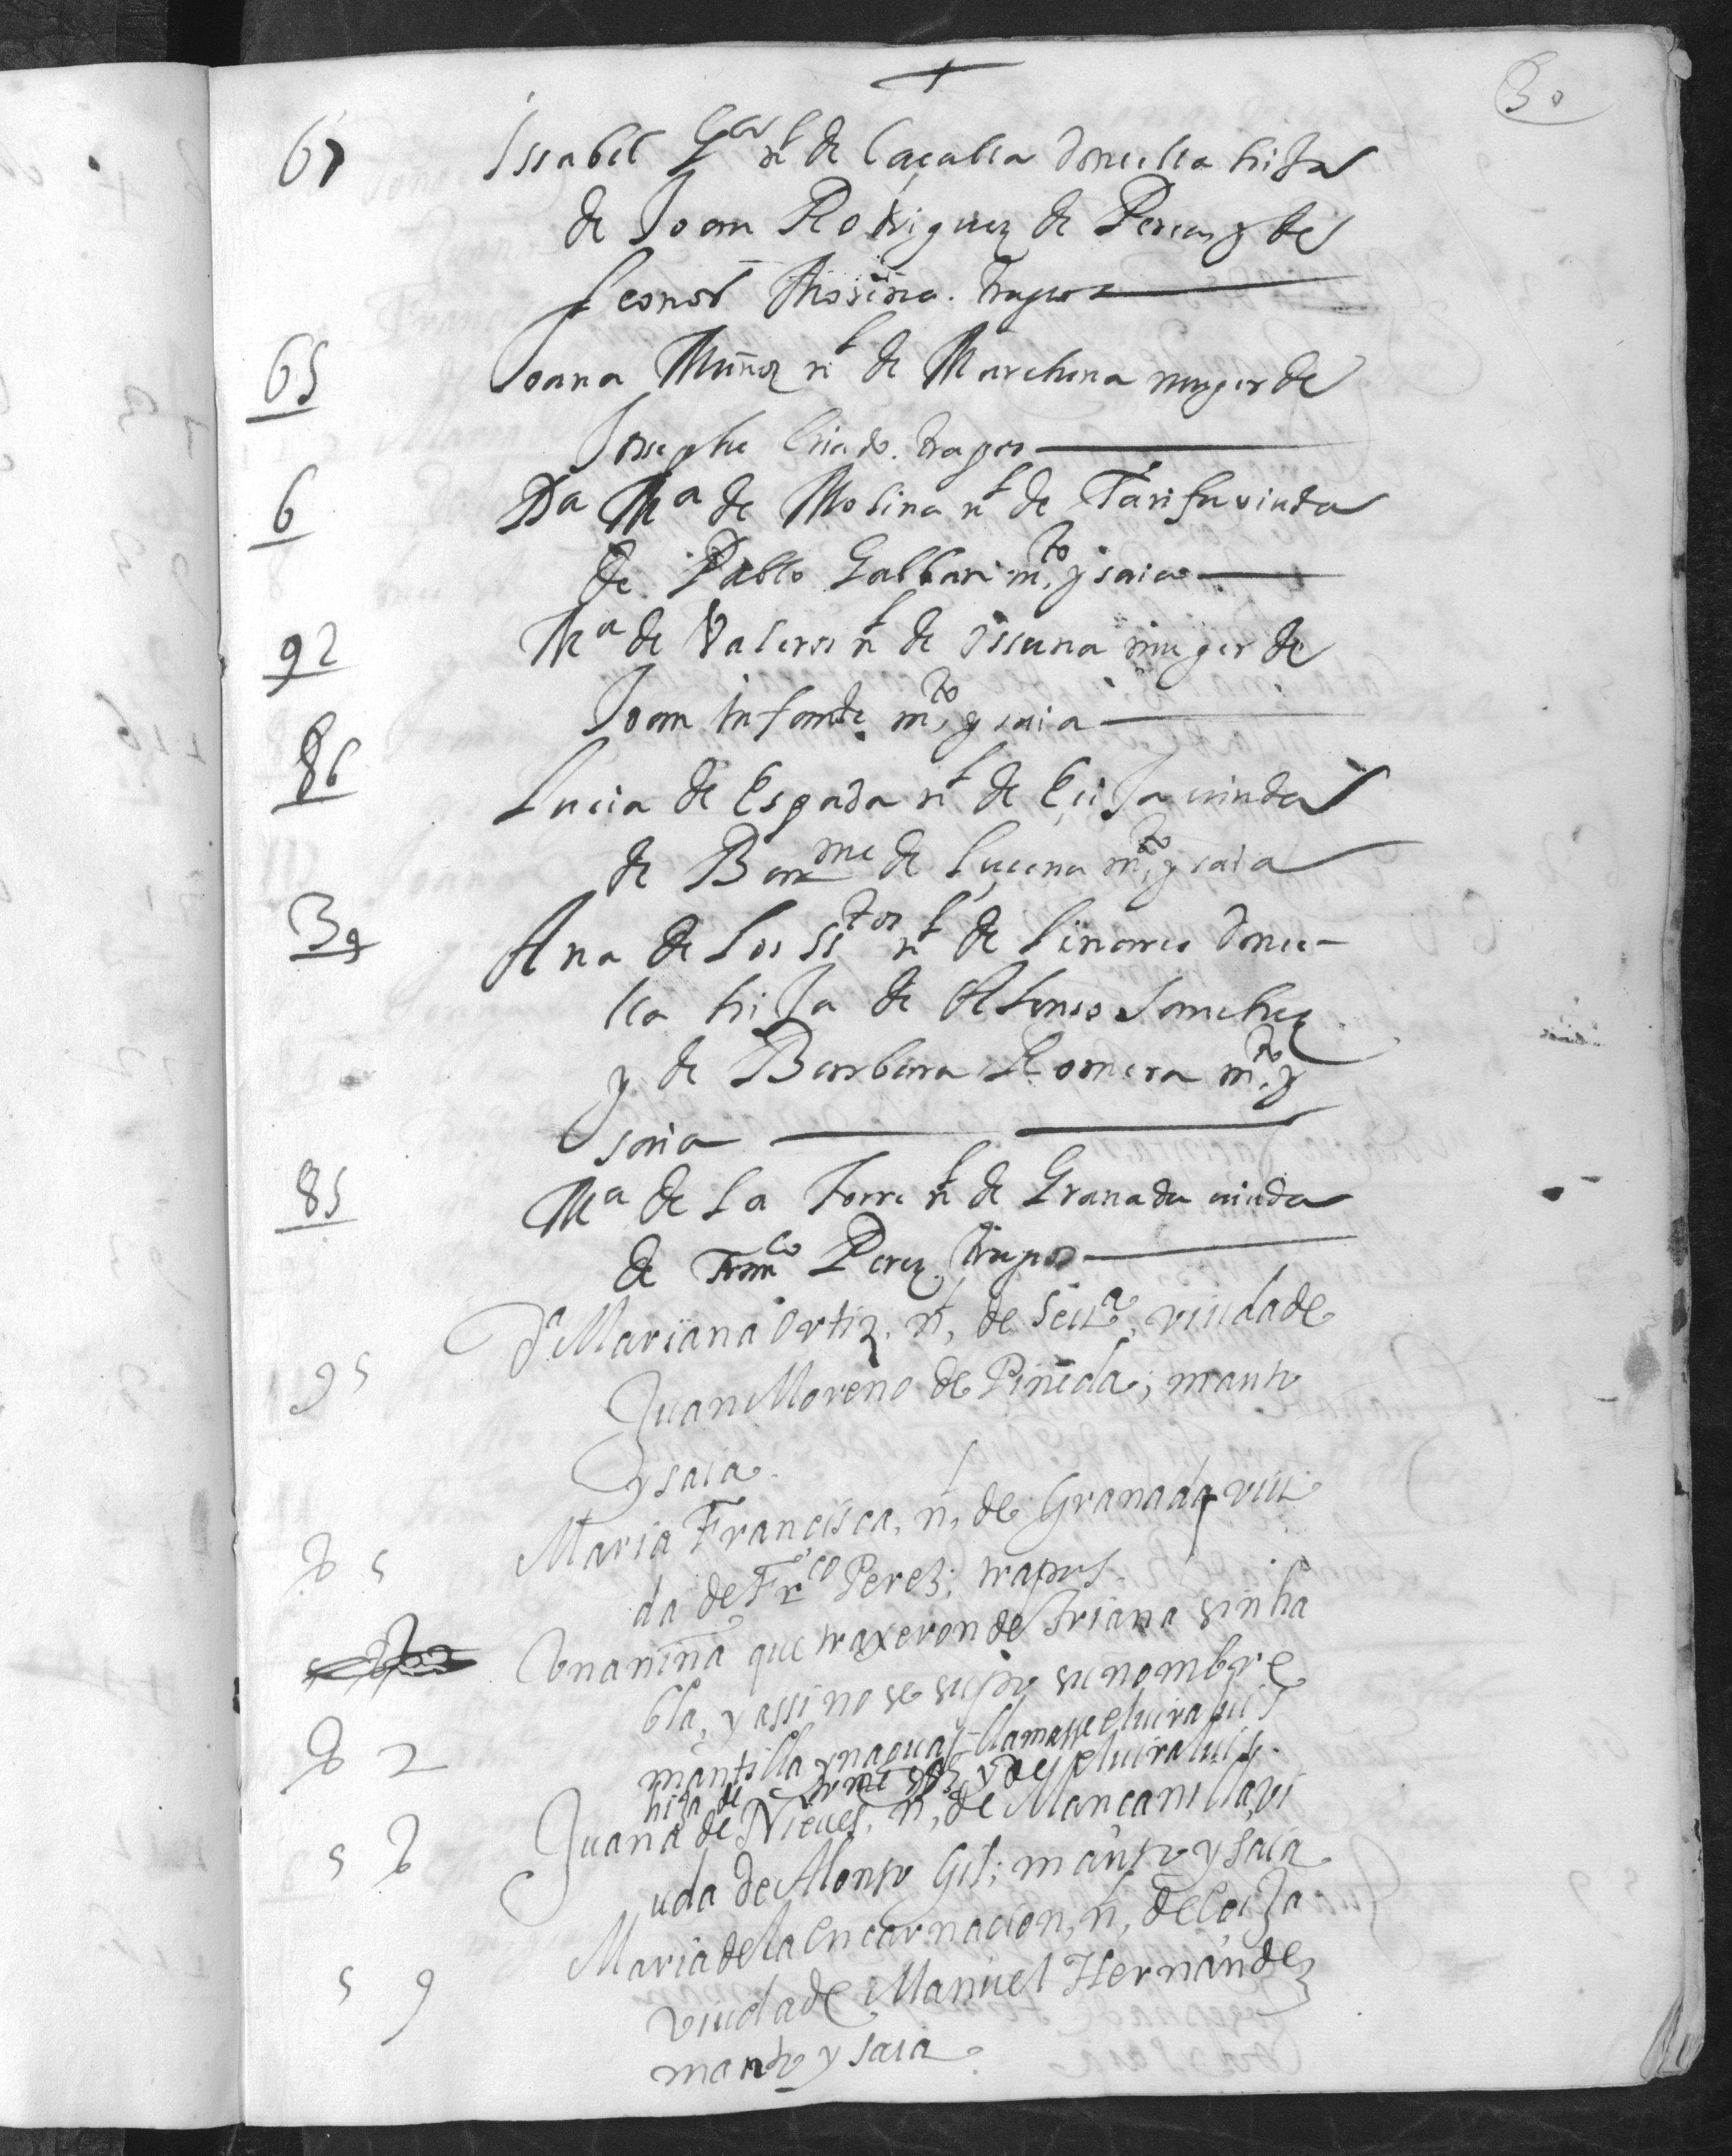 +
30
67 Issabel Gar nl de Caçalla donçella hiJa
de Joan Rodriguez de Perea y de
Leonor Mosina. trapos
65 Joana Muñoz nl de Marchena muger de
Josephe Criado. trapos
6 Da Ma de Molina nl de Tarifa viuda
de Pablo Gallari mto y saia
92 Ma de Valeros nl de Ossuna muger de
Joan Infante mto y saia
86 Lucia de Espada nl de EçiJa viuda
de Barme de Luçena mto y saia
39 Ana de Los Stos nl de Linares donce-
lla hiJa de Alonso Sanchez
y de Barbara Romera mto y
saia
85 Ma de La Torre nl de Granada viuda
de Franco Perez trapos
95 Da Mariana Ortiz, nl, de Seula, viuda de
Juan Moreno de Pineda; manto
y saia.
85 Maria Francisca, nl, de Granada, viu
da de Frco Perez; trapos.
Una niña que traxeron de Triana sin ha
bla, y assi no se supo su nombre
82 mantilla y naguas llamasse eluira luis
hija de y de eluira luis.
58 Juana de Nieues, nl, de Mançanilla, vi
uda de Alonso Gil; manto y saia
59 Maria de la Encarnacion, nl, de EciJa
viuda de Manuel Hernandez
manto y saia